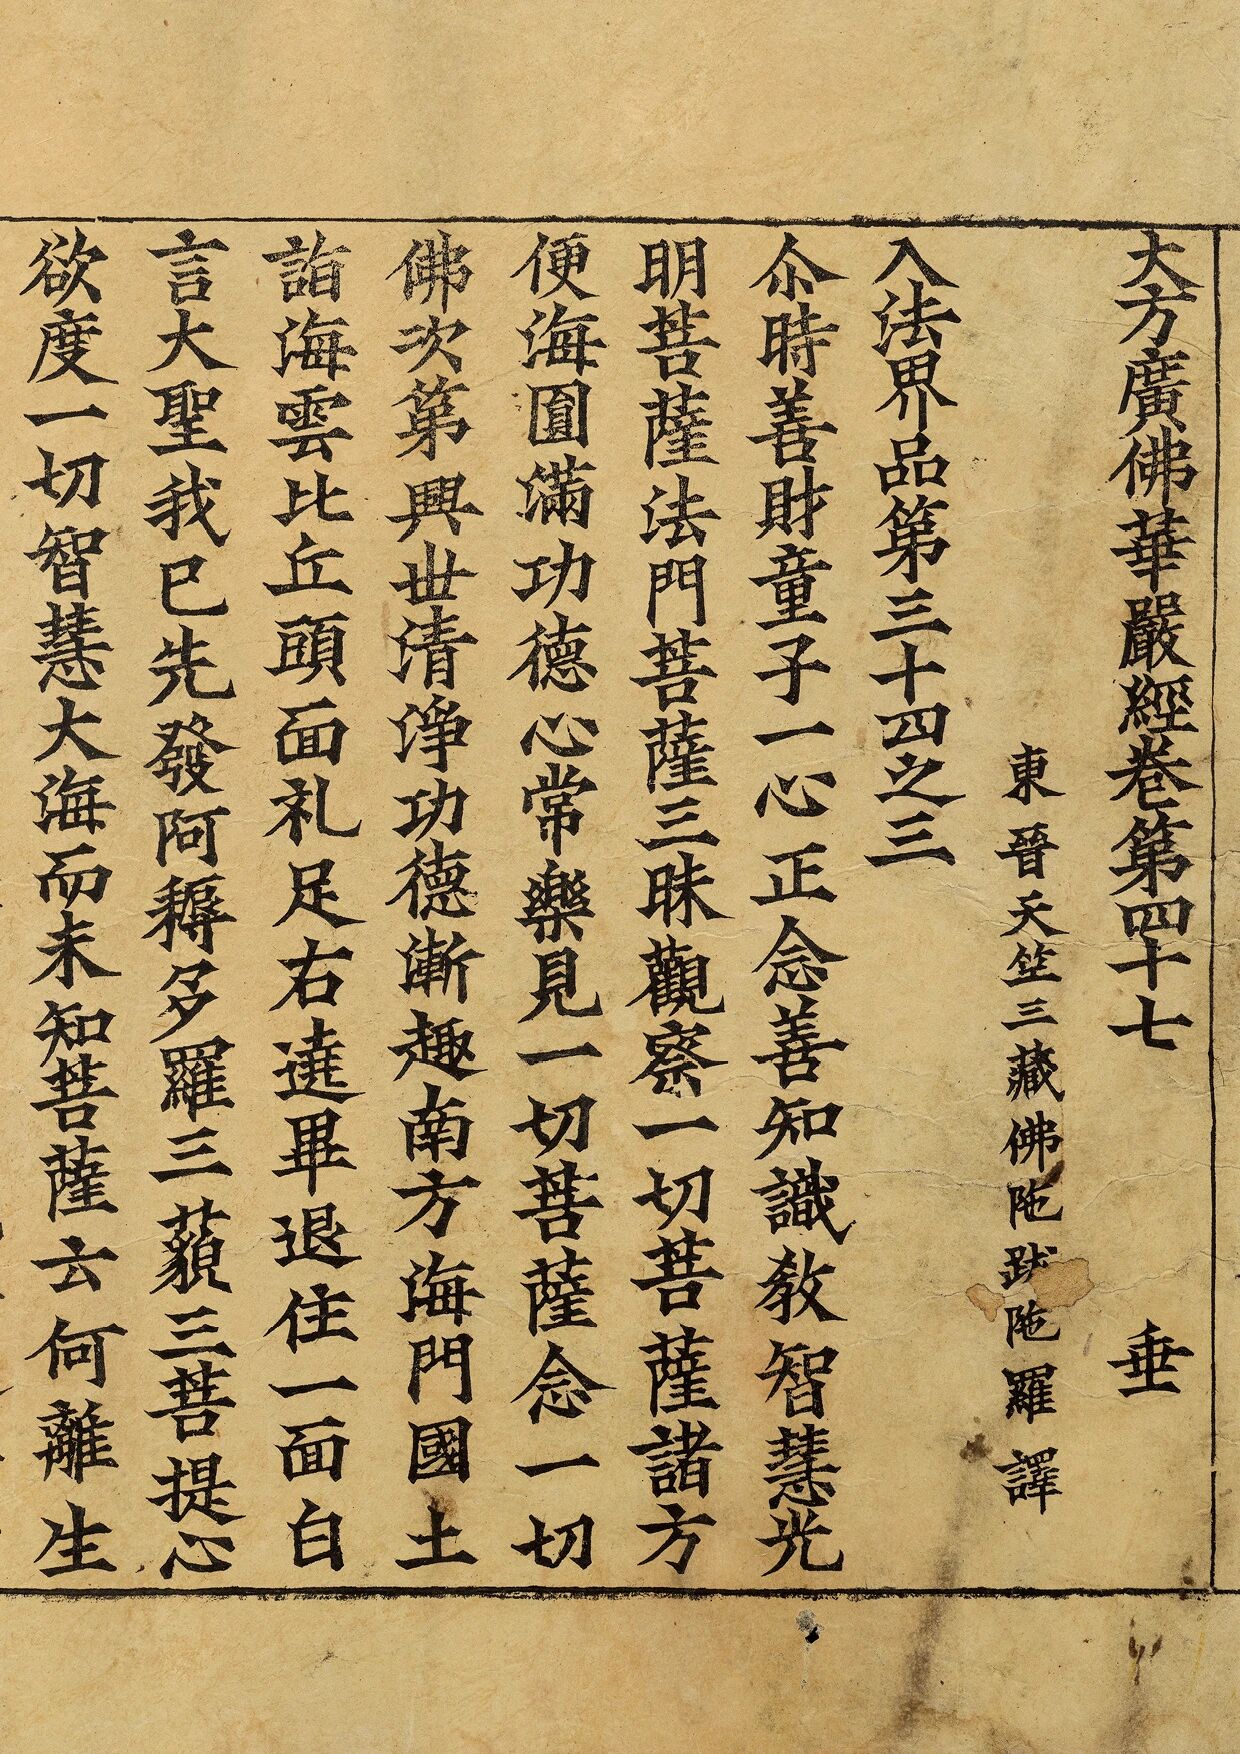 大方廣佛華嚴經卷第四十七 垂
東晉天竺三藏佛陁跋陁羅 譯
入法界品第三十四之三
尒時善財童子一心正念善知識教智慧光
明菩薩法門菩薩三昧觀察一切菩薩諸方
便海圓滿功德心常樂見一切菩薩念一切
佛次第興世清淨功德漸趣南方海門國土
詣海雲比丘頭面礼足右遶畢退住一面白
言大聖我已先發阿耨多羅三藐三菩提心
欲度一切智慧大海而未知菩薩云何離生